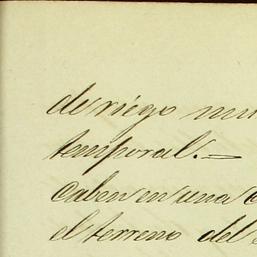 de riego mu
temporal. =
Caben en una
el terreno del